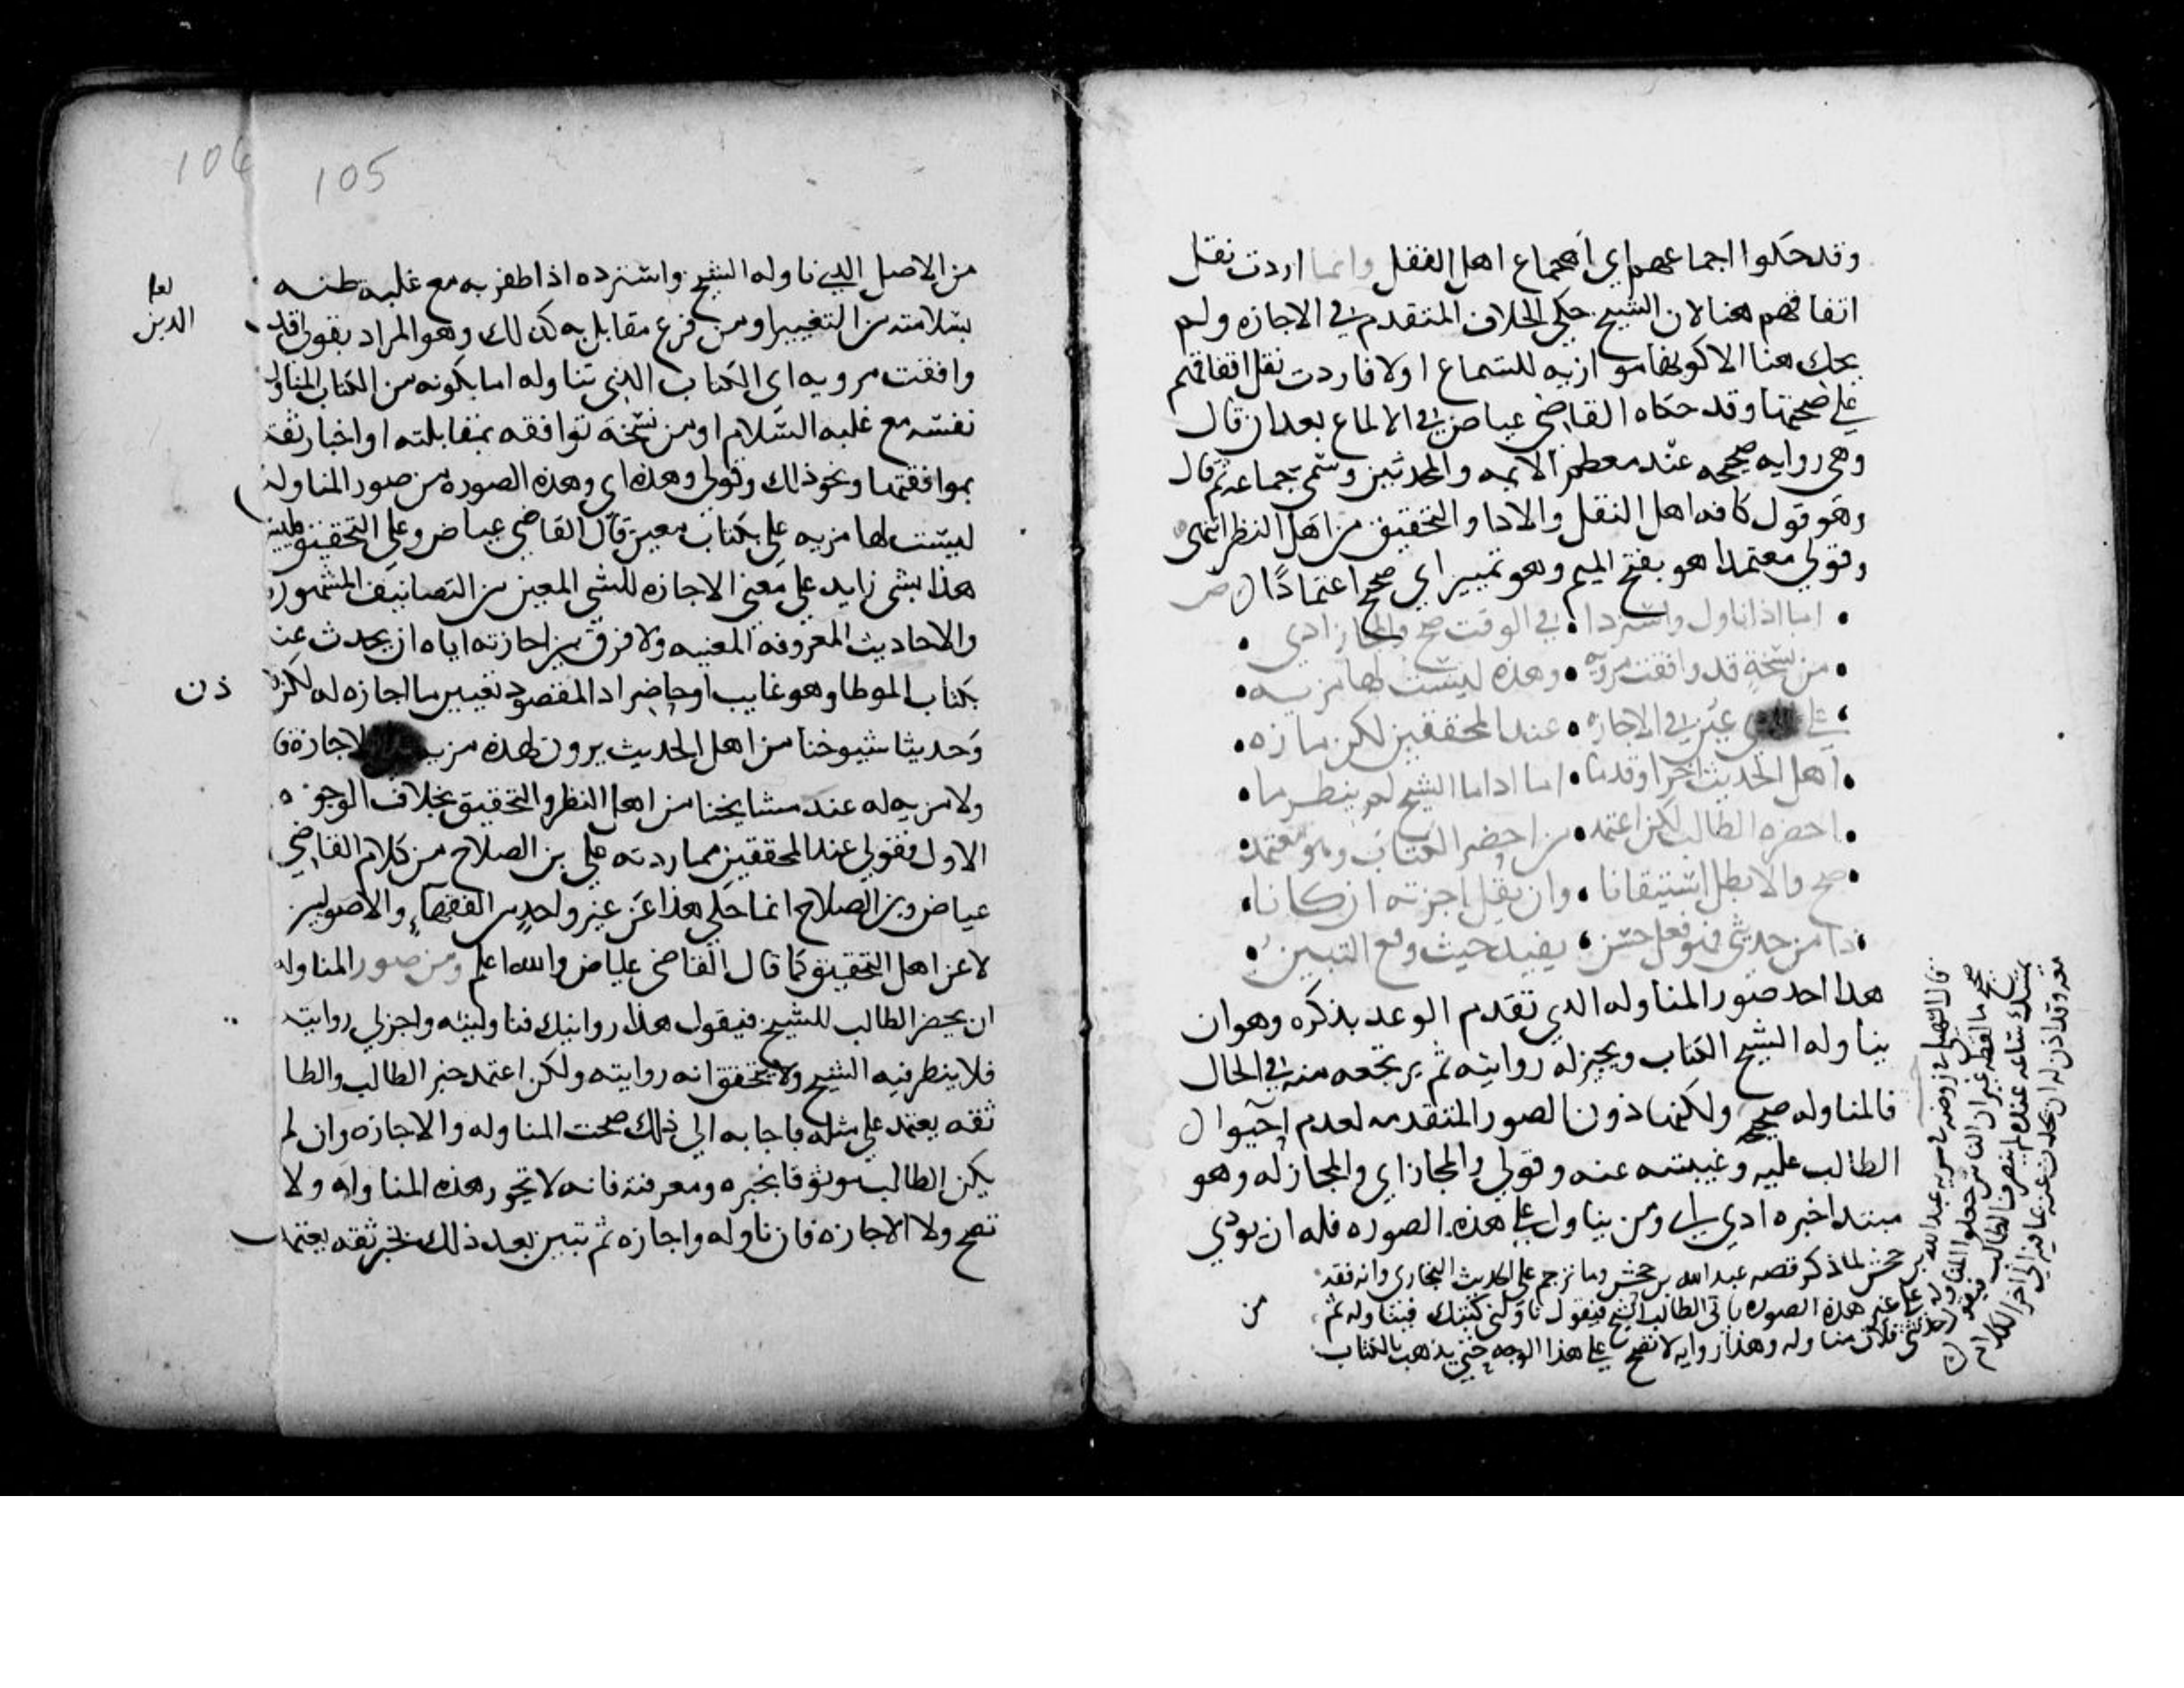 وقد حكوا اجماعهم اي اجماع اهل النقل وانما اردت نقل
اتفاقهم هنا لان الشيخ حكي الخلاف المتقدم في الاجازه ولم
يحك هنا الا كونها موازيه للسماع اولا فاردت نقل اتفاقهم
علي صحتها وقد حكاه القاضي عياض في الالماع بعد ان قال
وهي روايه صحيحه عند معظم الايمه والمحدثين وسمي جماعه ثم قال
وهو قول كافه اهل النقل والادا والتحقيق من اهل النظر انتهى
وقولي معتمدا هو بفتح الميم وهو تمييز اي صح اعتمادًا ص
اما اذا ناول واستردا في الوقت صح والمجاز ادي
من نسخةٍ قد وافقت مرويه وهذه ليست لها مزيه
علي الذي عين في الاجازه عند المحققين لكن مازه
اهل الحديث اخرا وقدما اما اذا ما الشيخ لم ينظر ما
احضره الطالب لكن اعتمد من احضر الكتاب وهو معتمد
صح والا بطل استيقانا وان يقل اجزته ان كانا
ذا من حديثي فهو فعل حسن يفيد حيث وقع التبين
هذا احد صور المناوله الذي تقدم الوعد بذكره وهو ان
يناوله الشيخ الكتاب ويجيز له روايته ثم يرتجعه منه في الحال
فالمناوله صحيحه ولكنها دون الصور المتقدمه لعدم احتوا
الطالب عليه وغيبته عنه وقولي والمجاز اي والمجاز له وهو
مبتدا خبره ادي اي ومن يناول علي هذه الصوره فله ان يودي
قال السهيلي في روضه في سريه عبد الله بن
جحش لما ذكر قصه عبد الله بن جحش وما ترجم علي الحديث البخاري وانه فقه
صحيح ما لفظه غير ان الناس جعلوا المناوله علي غير هذه الصوره ياتي الطالب الشيخ فيقول ناولني كتبك فيناوله ثم
يمسك ساعه عنده ثم ينصرف الطالب فيقول حدثني فلان مناوله وهذا روايه لا تصح علي هذا الوجه حتي يذهب بالكتاب
معه وقد اذن له ان يحدث عنه بما فيه الي اخر الكلام
من
105
من الاصل الذي ناوله الشيخ واسترده اذا ظفر به مع غلبه ظنه
بسلامته من التغيير او من فرع مقابل به كذلك وهو المراد بقولي قد
وافقت مرويه اي الكتاب الذي تناوله اما بكونه من الكتاب المناول
نفسه مع غلبه السلام او من نسخة توافقه بمقابلته او اخبار ثقة
بموافقتها ونحو ذلك وقولي وهذه اي وهذه الصوره من صور المناوله
ليست لها مزيه علي كتاب معين قال القاضي عياض وعلي التحقيق فليس
هذا بشي زايد علي معني الاجازه للشي المعين من التصانيف المشهوره
والاحاديث المعروفه المعينه ولا فرق بين اجازته اياه ان يحدث عنه
بكتاب الموطا وهو غايب او حاضر اذ المقصود تعيين ما اجازه له لكن
وحديثا شيوخنا من اهل الحديث يرون لهذه مزيه
ولا مزيه له عند مشايخنا من اهل النظر والتحقيق بخلاف الوجوه
الاول فقولي عند المحققين مما زدته علي بن الصلاح من كلام القاضي
عياض وبن الصلاح انما حكي هذا عن غير واحدٍ من الفقهاءِ والاصوليين
لا عن اهل التحقيق كما قال القاضي عياض والله اعلم ومن صور المناوله
ان يحضر الطالب للشيخ فيقول هذا روايتك فناولنيه واجز لي روايته
فلا ينظر فيه الشيخ ولا يتحقق انه روايته ولكن اعتمد خبر الطالب والطا
ثقه يعتمد علي مثله فاجابه الي ذلك صحت المناوله والاجازه وان لم
يكن الطالب موثوقا بخبره ومعرفته فانه لا تجوز هذه المناوله ولا
تصح ولا الاجازه فان ناوله واجازه ثم تبين بعد ذلك بخبر ثقه يعتمد